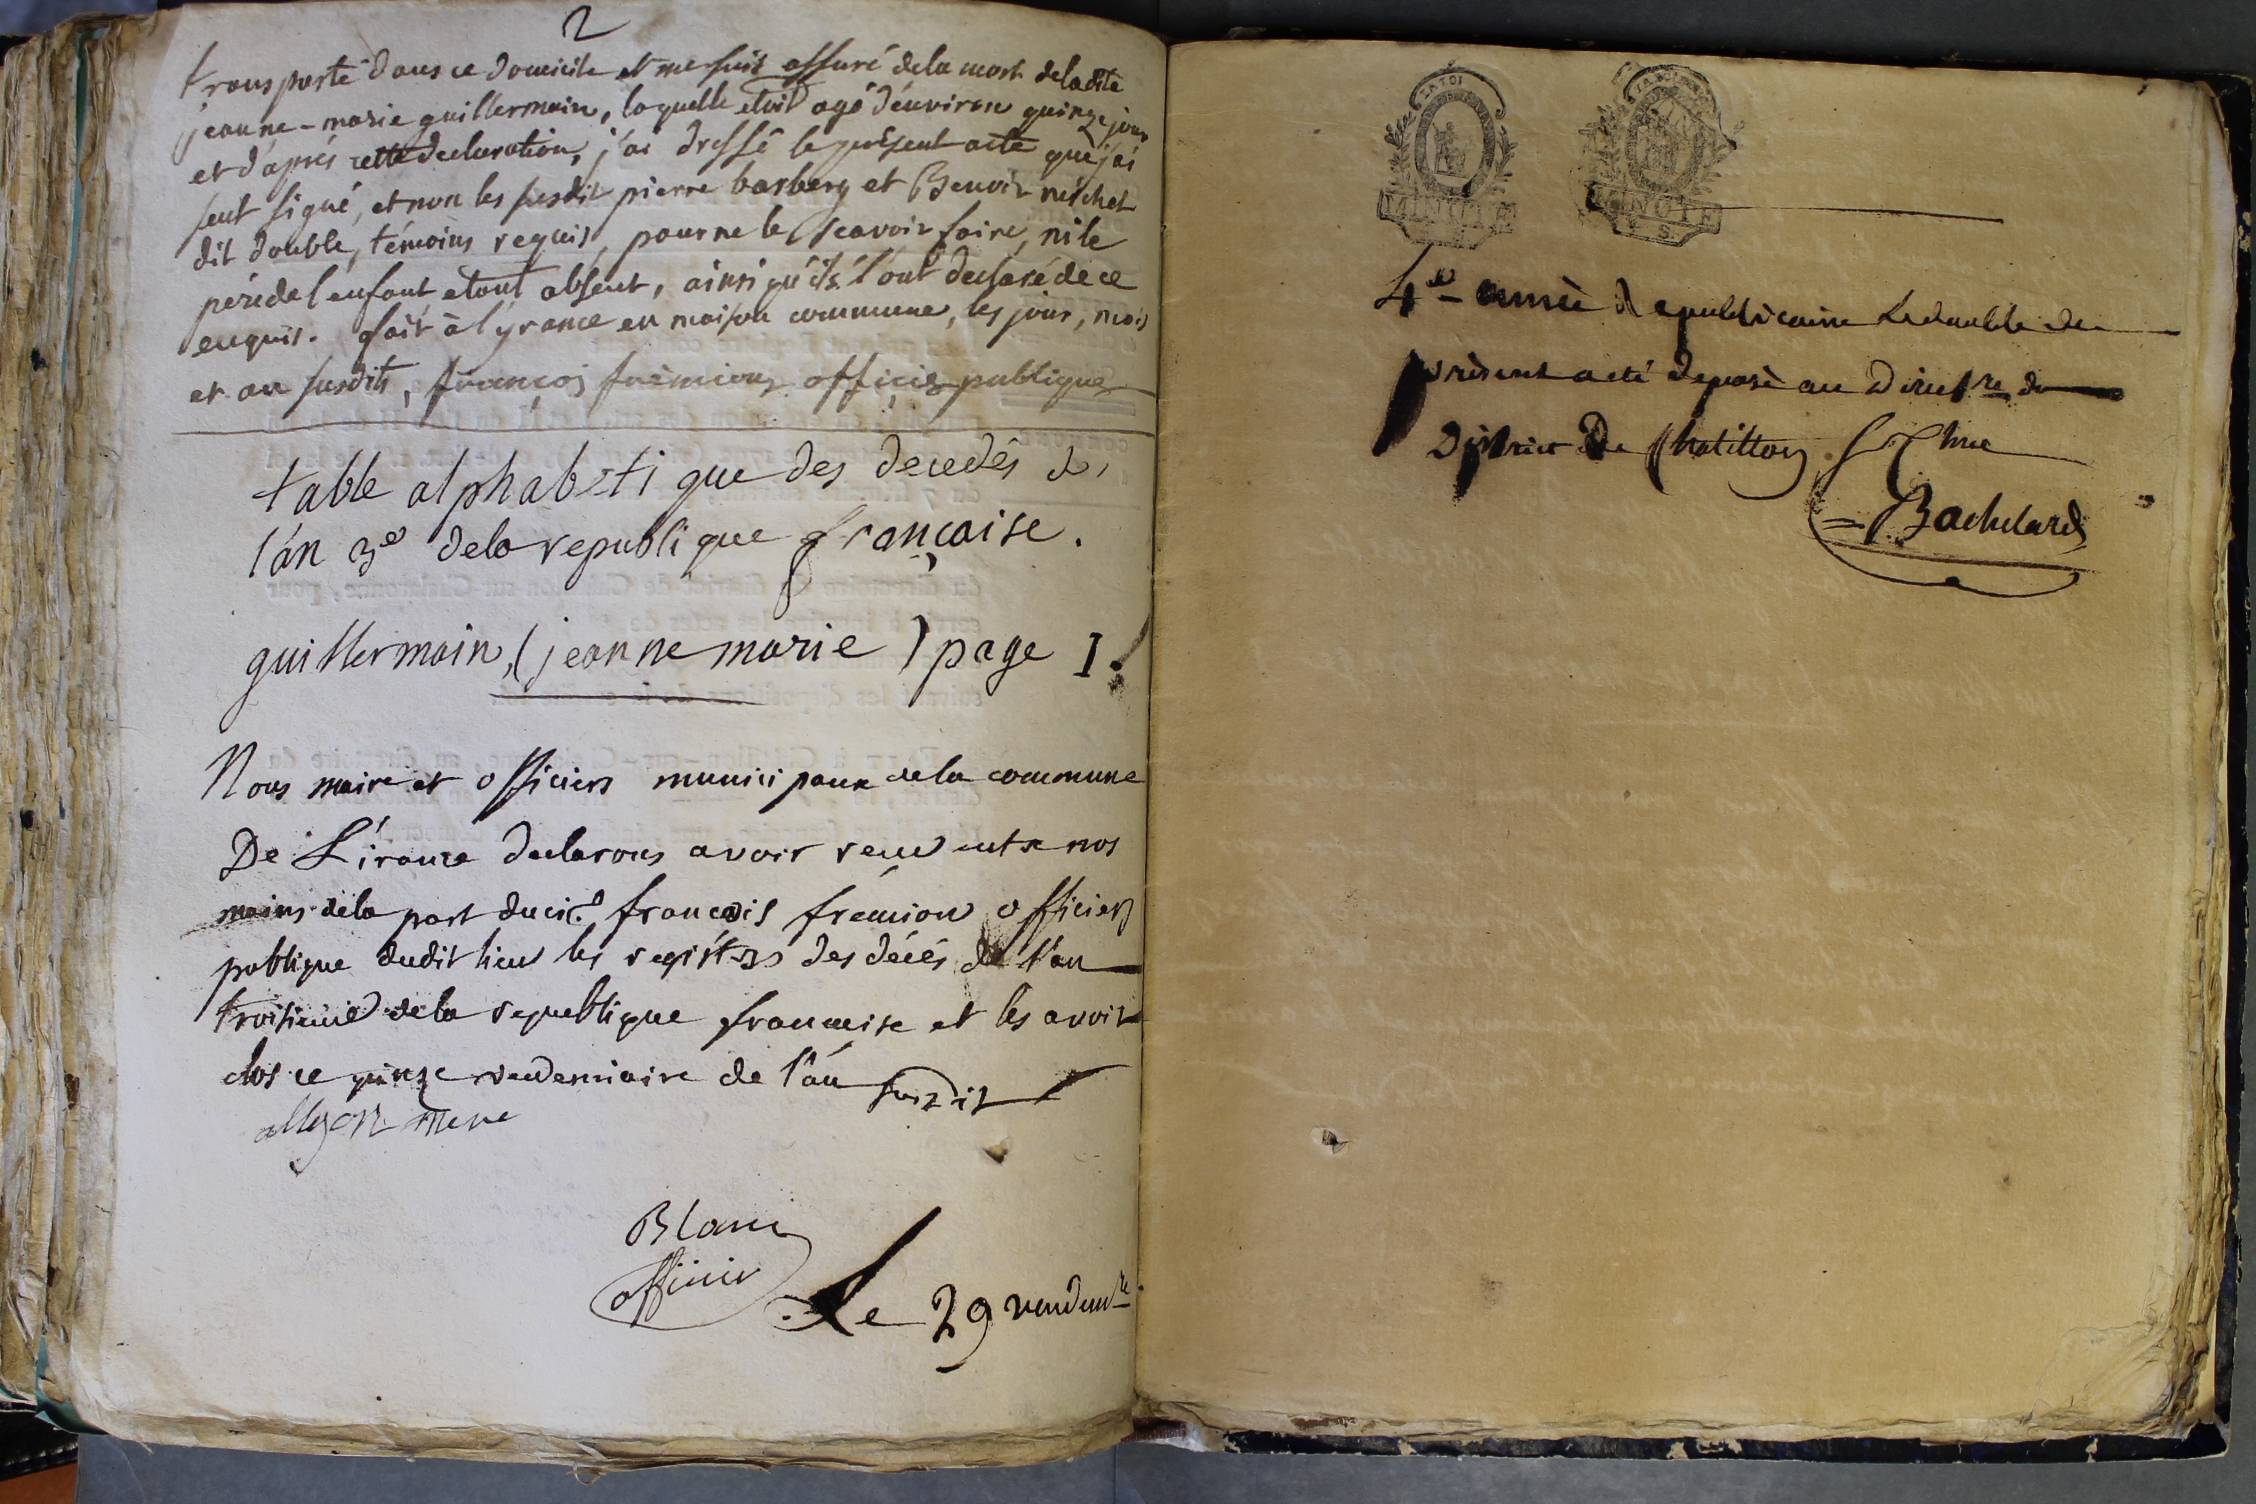 2
transporté dans ce domicile et me suis assuré de la mort de ladite
jeanne-marie guillermain, laquelle etoit agé d'environ quinze jours
et d'aprés cette declaration, j'ai dressé le présent acte que j'ai
seul signé, et non les susdit pierre barbery et Benoit
dit double, témoins requis, pour ne le sçavoir faire, ni le
pére de l'enfant etant absent, ainsi qu'ils l'ont declaré de ce
enquis. fait à l'yrance en maison commune, les jour, mois
et an susdits, françois frémion officier publique
table alphabetique des decedés de
l'an 3e de la republique française.
guillermain, (jeanne marie) page I.
Nous maire et officiers municipaux de la commune
De L'irance declarons avoir recu entre nos
mains de la part du cit. françois frémion officier
publique dudit lieu les registres des décés de l'an
troisieme de la republique francaise et les avoir
clos ce quinze vendemiaire de l'an susdit
Blanc
officier
Le 29 vendem.re
LA LOI
MINUTE
S.
MINUTE
S.
4e année Republicaine Le double du
présent acté deposé au Direct.re du
District De Chatillon
Bachelard